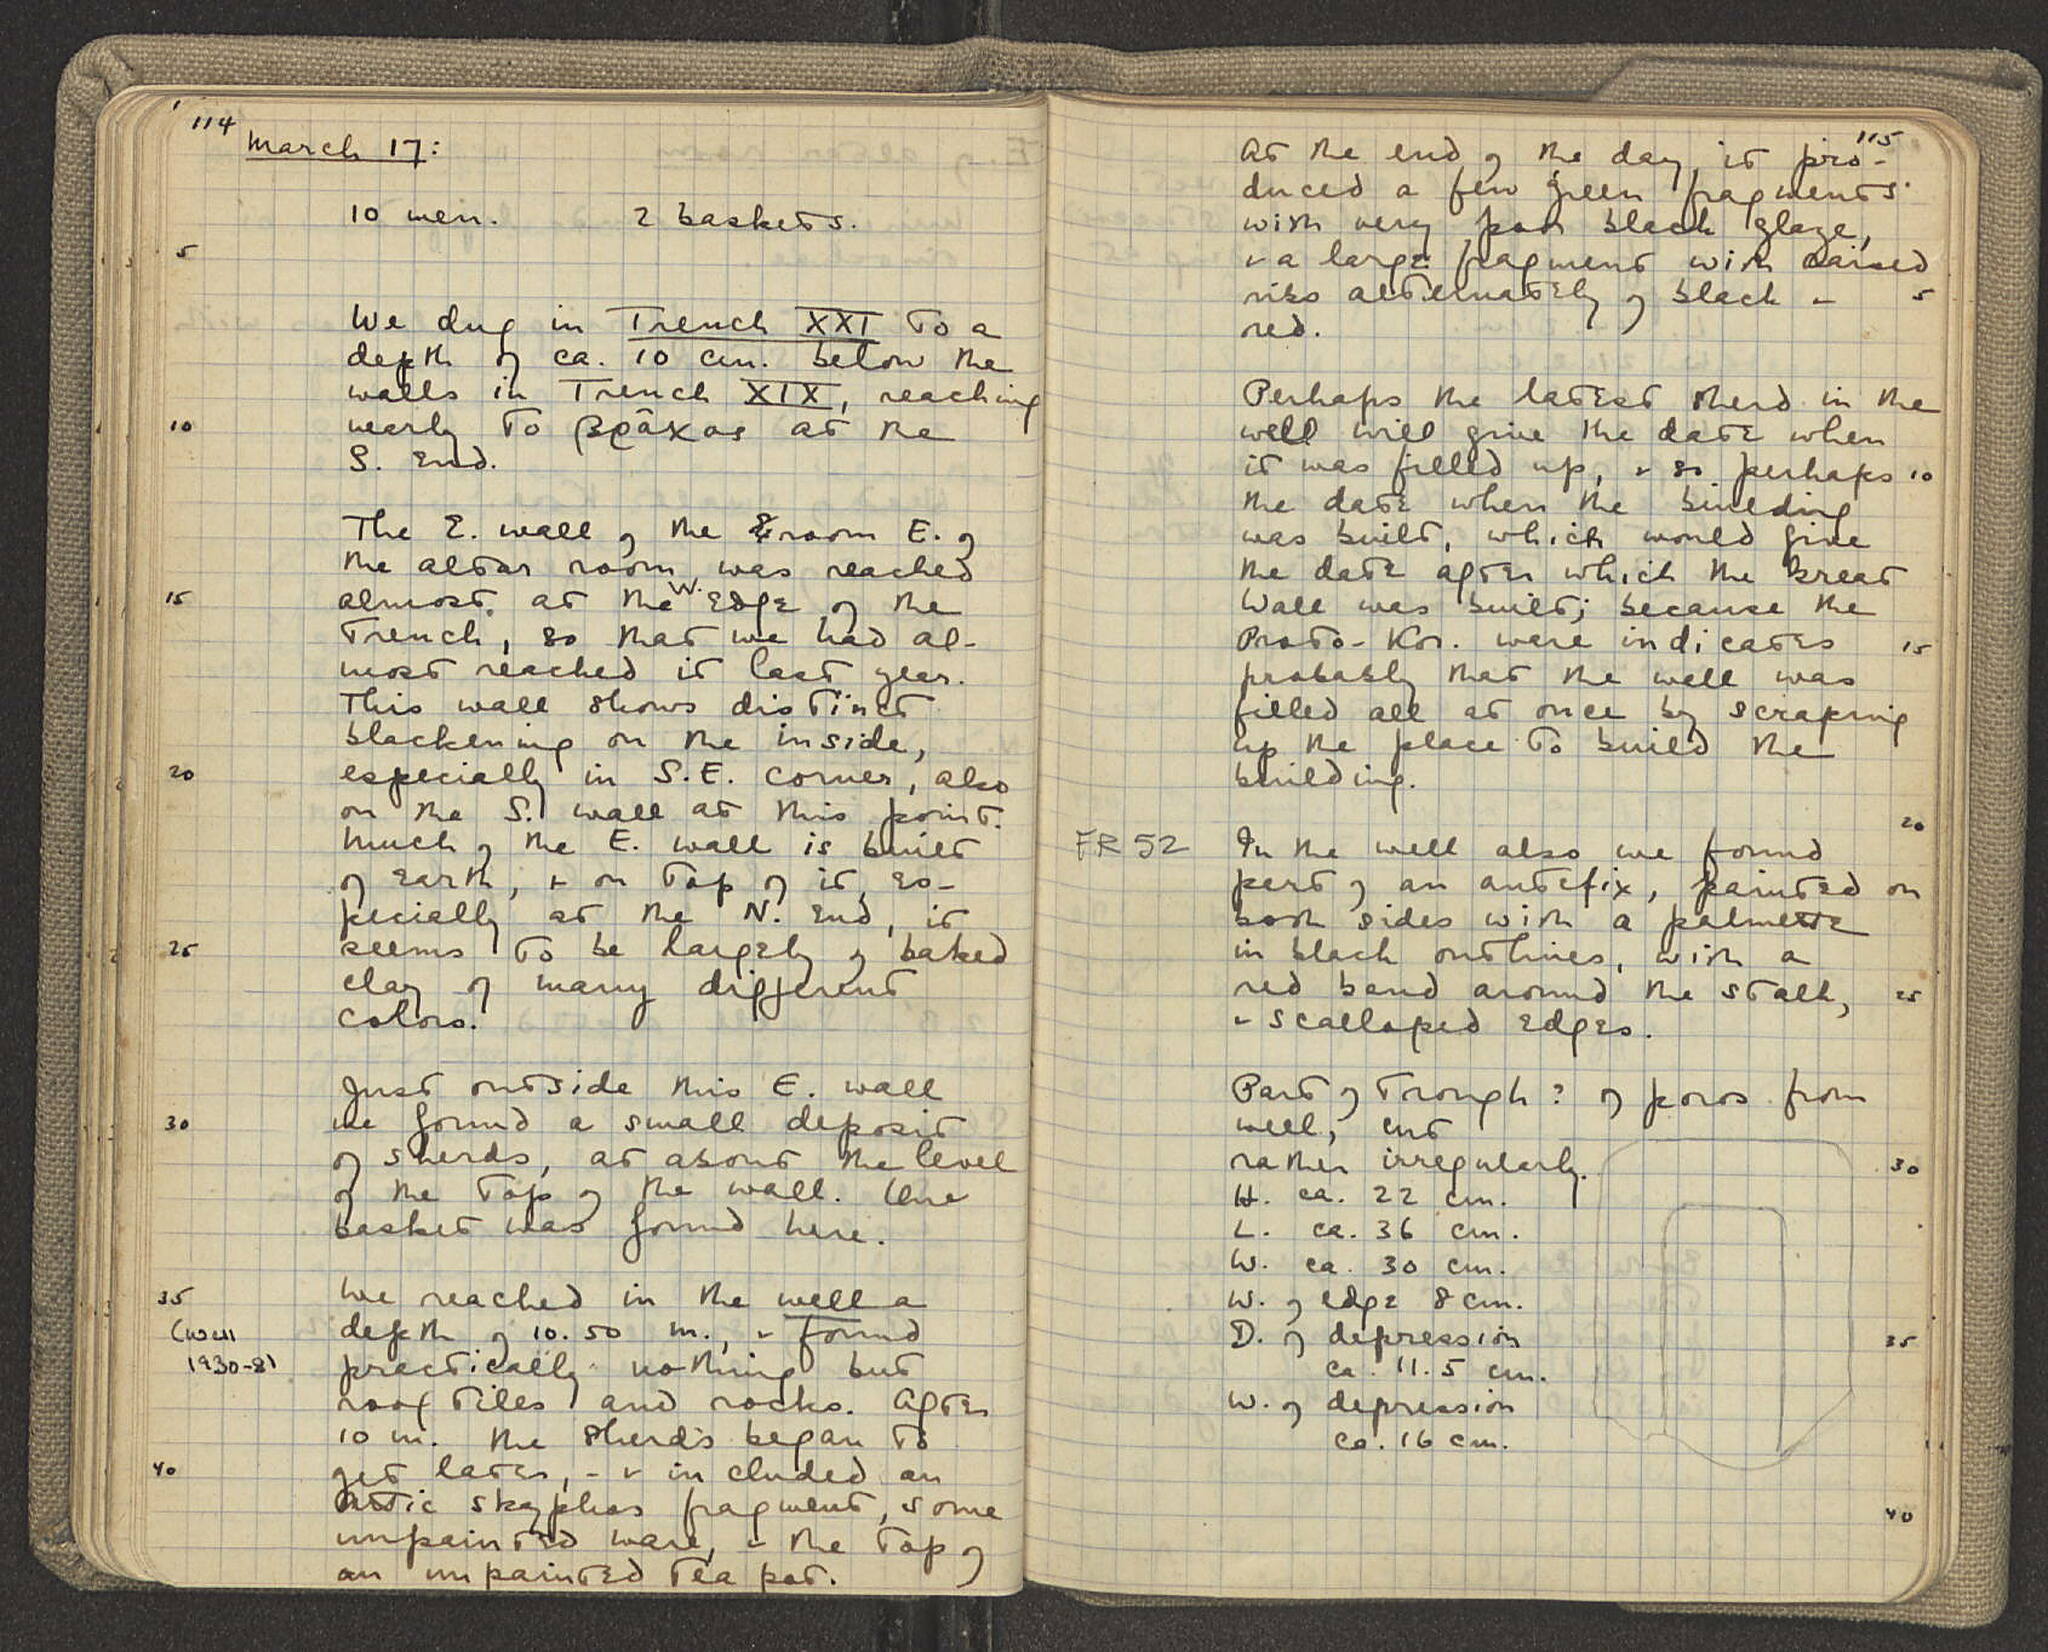 114
March 17:
10 men. 2 baskets.
5
We dug in Trench XXI to a
depth of ca. 10 cm. below the
walls in Trench XIX, reaching
10 nearly to βράχος at the
S. end.
The E. wall of the room E. of
the altar room was reached
15 almost at the W. edge of the
trench, so that we had al-
most reached it last year.
This wall shows distinct
blackening on the inside,
20 especially in S.E. corner, also
on the S. wall at this point.
Much of the E. wall is built
of earth, & on top of it, es-
pecially at the N. end, it
25 seems to be largely of baked
clay of many different
colors.
Just outside this E. wall
30 we found a small deposit
of sherds, at about the level
of the top of the wall. One
basket was found here.
35 We reached in the well a
(Well depth of 10.50 m., & found
1930-8) practically nothing but
roof tiles and rocks. After
10 m. the sherds began to
40 get later, - & included an
Attic skyphos fragment, some
unpainted ware, & the top of
an unpainted tea pot.
115
At the end of the day it pro-
duced a few green fragments
with very poor black glaze,
& a large fragment with raised
ribs alternately of black & 5
red.
Perhaps the latest sherd in the
well will give the date when
it was filled up, & so perhaps 10
the date when the building
was built, which would give
the date after which the Great
Wall was built; because the
Proto-Kor. ware indicates 15
probably that the well was
filled all at once by scraping
up the place to build the
building.
20
FR 52 In the well also we found
part of an antefix, painted on
both sides with a palmette
in black outlines, with a
red band around the stalk, 25
& scalloped edges.
Part of trough? of poros from
well, cut
rather irregularly. 30
H. ca. 22 cm.
L. ca. 36 cm.
W. ca. 30 cm.
W. of edge 8 cm.
D. of depression 35
ca. 11.5 cm.
W. of depression
ca. 16 cm.
40